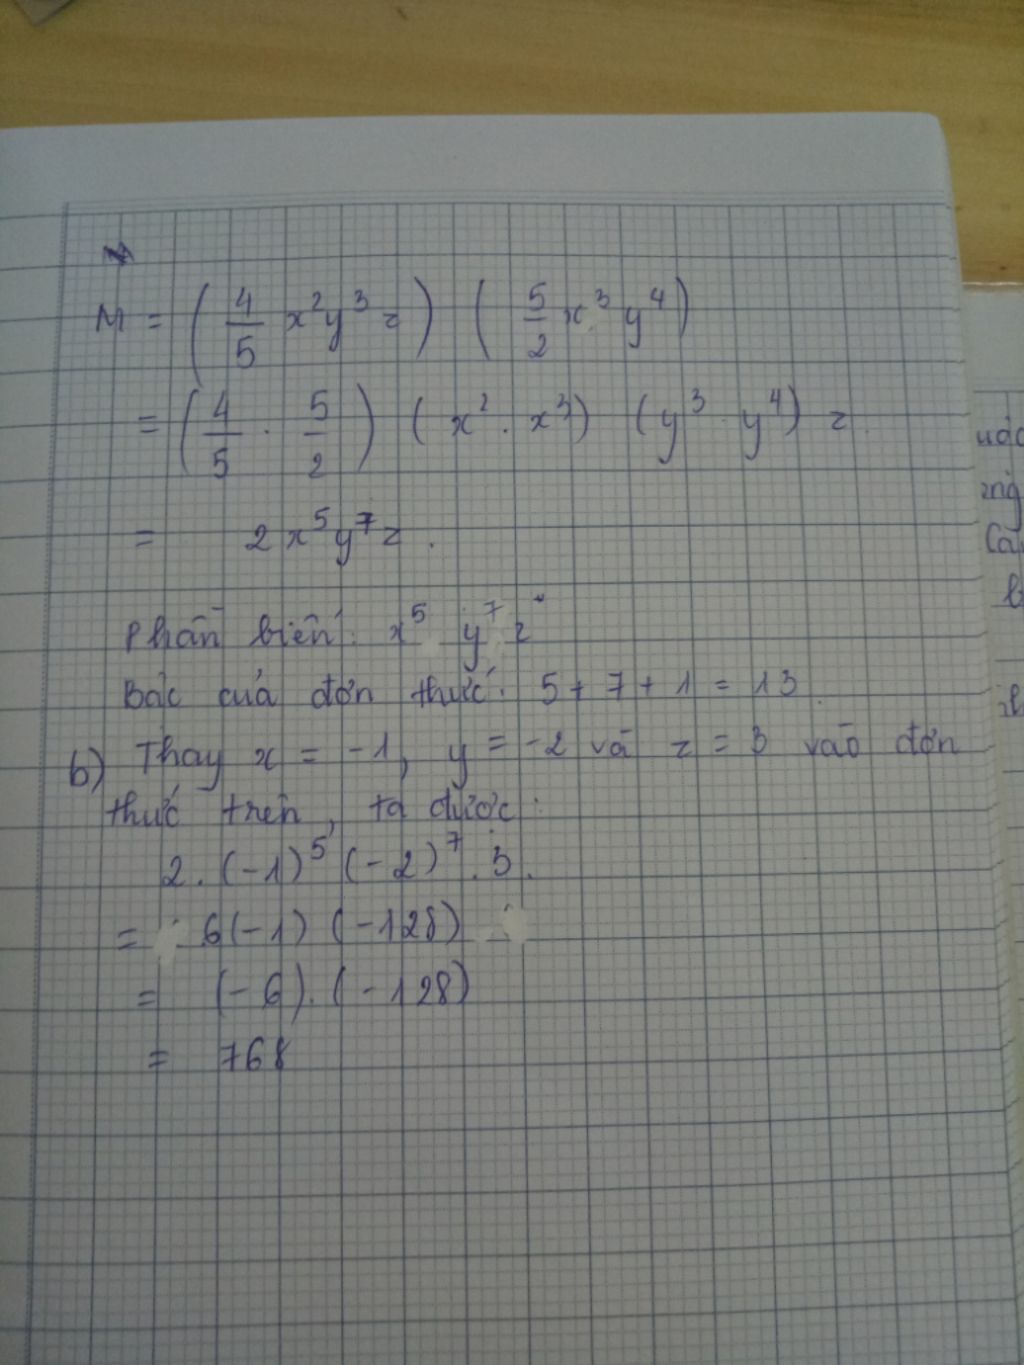 M = (4/5 x²y³z) (5/2 x³y⁴)
= (4/5 . 5/2) (x² . x³) (y³ . y⁴) z
= 2x⁵y⁷z.
Phần biến: x⁵ y⁷ z
Bậc của đơn thức: 5 + 7 + 1 = 13
b) Thay x = -1, y = -2 và z = 3 vào đơn
thức trên, ta được:
2. (-1)⁵ (-2)⁷ . 3.
= 6(-1) (-128)
= (-6). (-128)
= 768